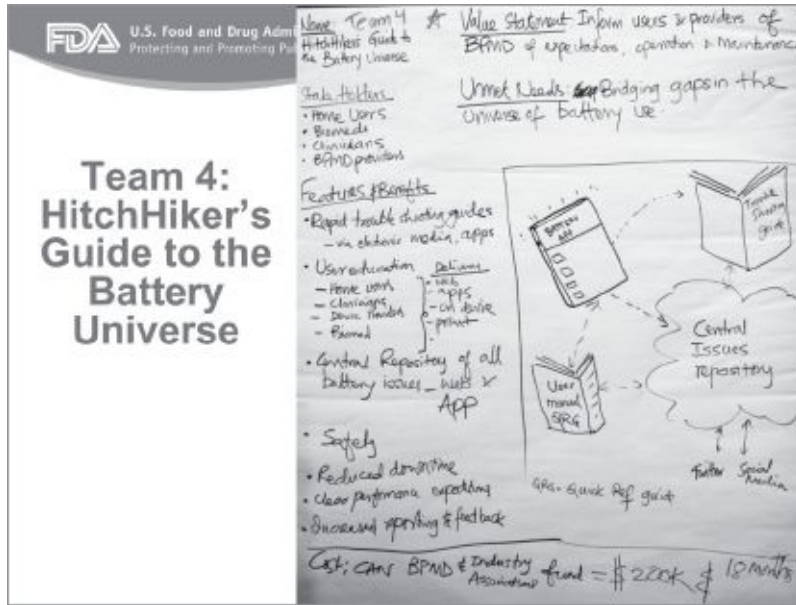 FDA
U.S. Food and Drug Admi
Protecting and Promoting Pu
Team 4:
HitchHiker's
Guide to the
Battery
Universe
Name Team 4
HitchHikers Guide to
the Battery Universe
☆ Value Statement Inform users & providers of
BPMD of expectations, operation & Maintenance
Unmet Needs: Bridging gaps in the
Universe of battery use.
Stake Holders
• Home Users
• Biomeds
• Clinicians
• BPMD providers
Features & Benefits
• Rapid trouble shooting guides
- via electronic media, apps
• User education
- Home users
- Clinicians
- Biomed
Delivery
- web
- apps
- on device
- print
• Central Repository of all
battery issues - web &
App
• Safety
• Reduced downtime
• Clear performance expectations
• Increased reporting & feedback
BATTERY
APP
Trouble
Shooting
guide
Central
Issues
repository
User
manual
QRG
Twitter
Social
Media
QRG = Quick Ref guide
Cost: CANS BPMD & Industry
Associations fund = $220K & 18 months